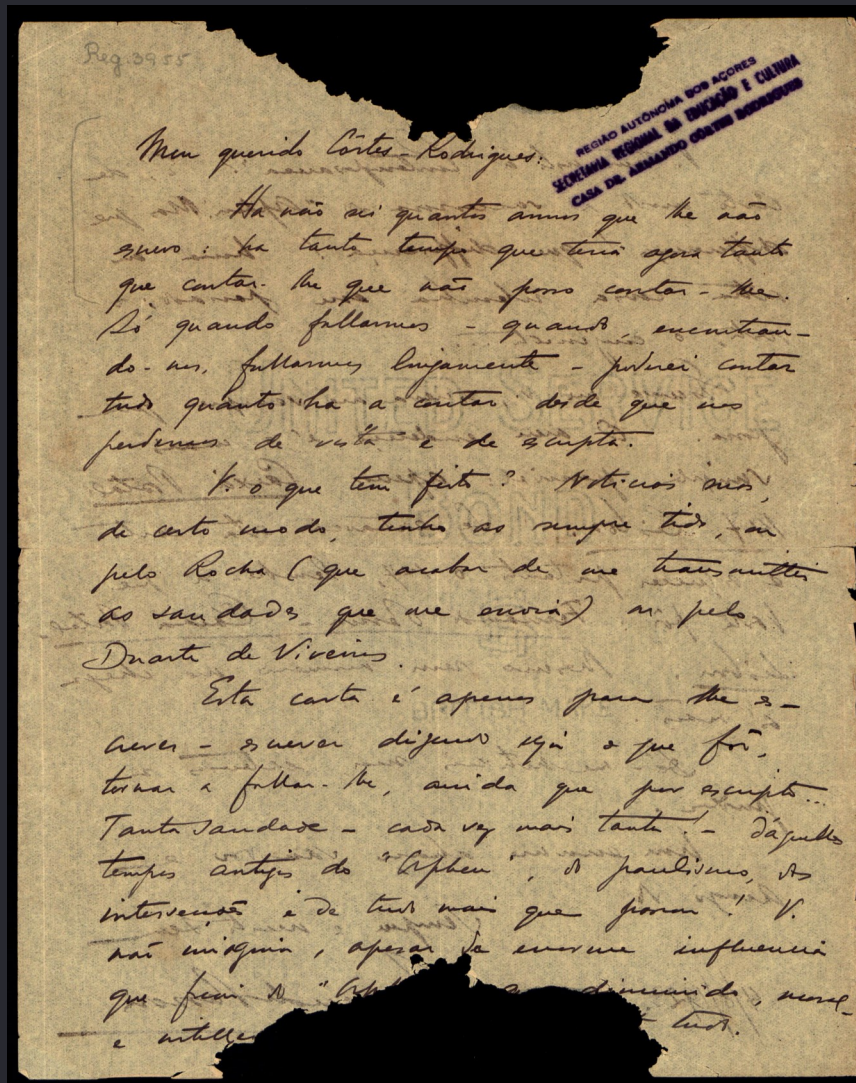 Reg. 3955
REGIÃO AUTÓNOMA DOS AÇORES
SECRETARIA REGIONAL DA EDUCAÇÃO E CULTURA
CASA DR. ARMANDO CÔRTES RODRIGUES
Meu querido Côrtes-Rodrigues:
Ha não sei quantos annos que lhe não
escrevo: ha tanto tempo que teria agora tanto
que contar-lhe que não posso contar-lhe.
Só quando fallarmos – quando, encontran-
do-nos, fallarmos longamente – poderei contar
tudo quanto ha a contar desde que nos
perdemos de vista e de escripta.
V. o que tem feito? Noticias suas,
de certo modo, tenho as sempre tido, ou
pelo Rocha (que acaba de me transmittir
as saudades que me envia) ou pelo
Duarte de Viveiros.
Esta carta é apenas para lhe es-
crever – escrever dizendo seja o que fôr,
tornar a fallar-lhe, ainda que por escripto...
Tanta saudade – cada vez mais tanta! – d'aquelles
tempos antigos do "Orpheu", do paulismo, das
intersecções e de tudo mais que passou! V.
não imagina, apesar da enorme influencia
que ficou do "Orph
diminuido, moral-
e intelle
tudo.